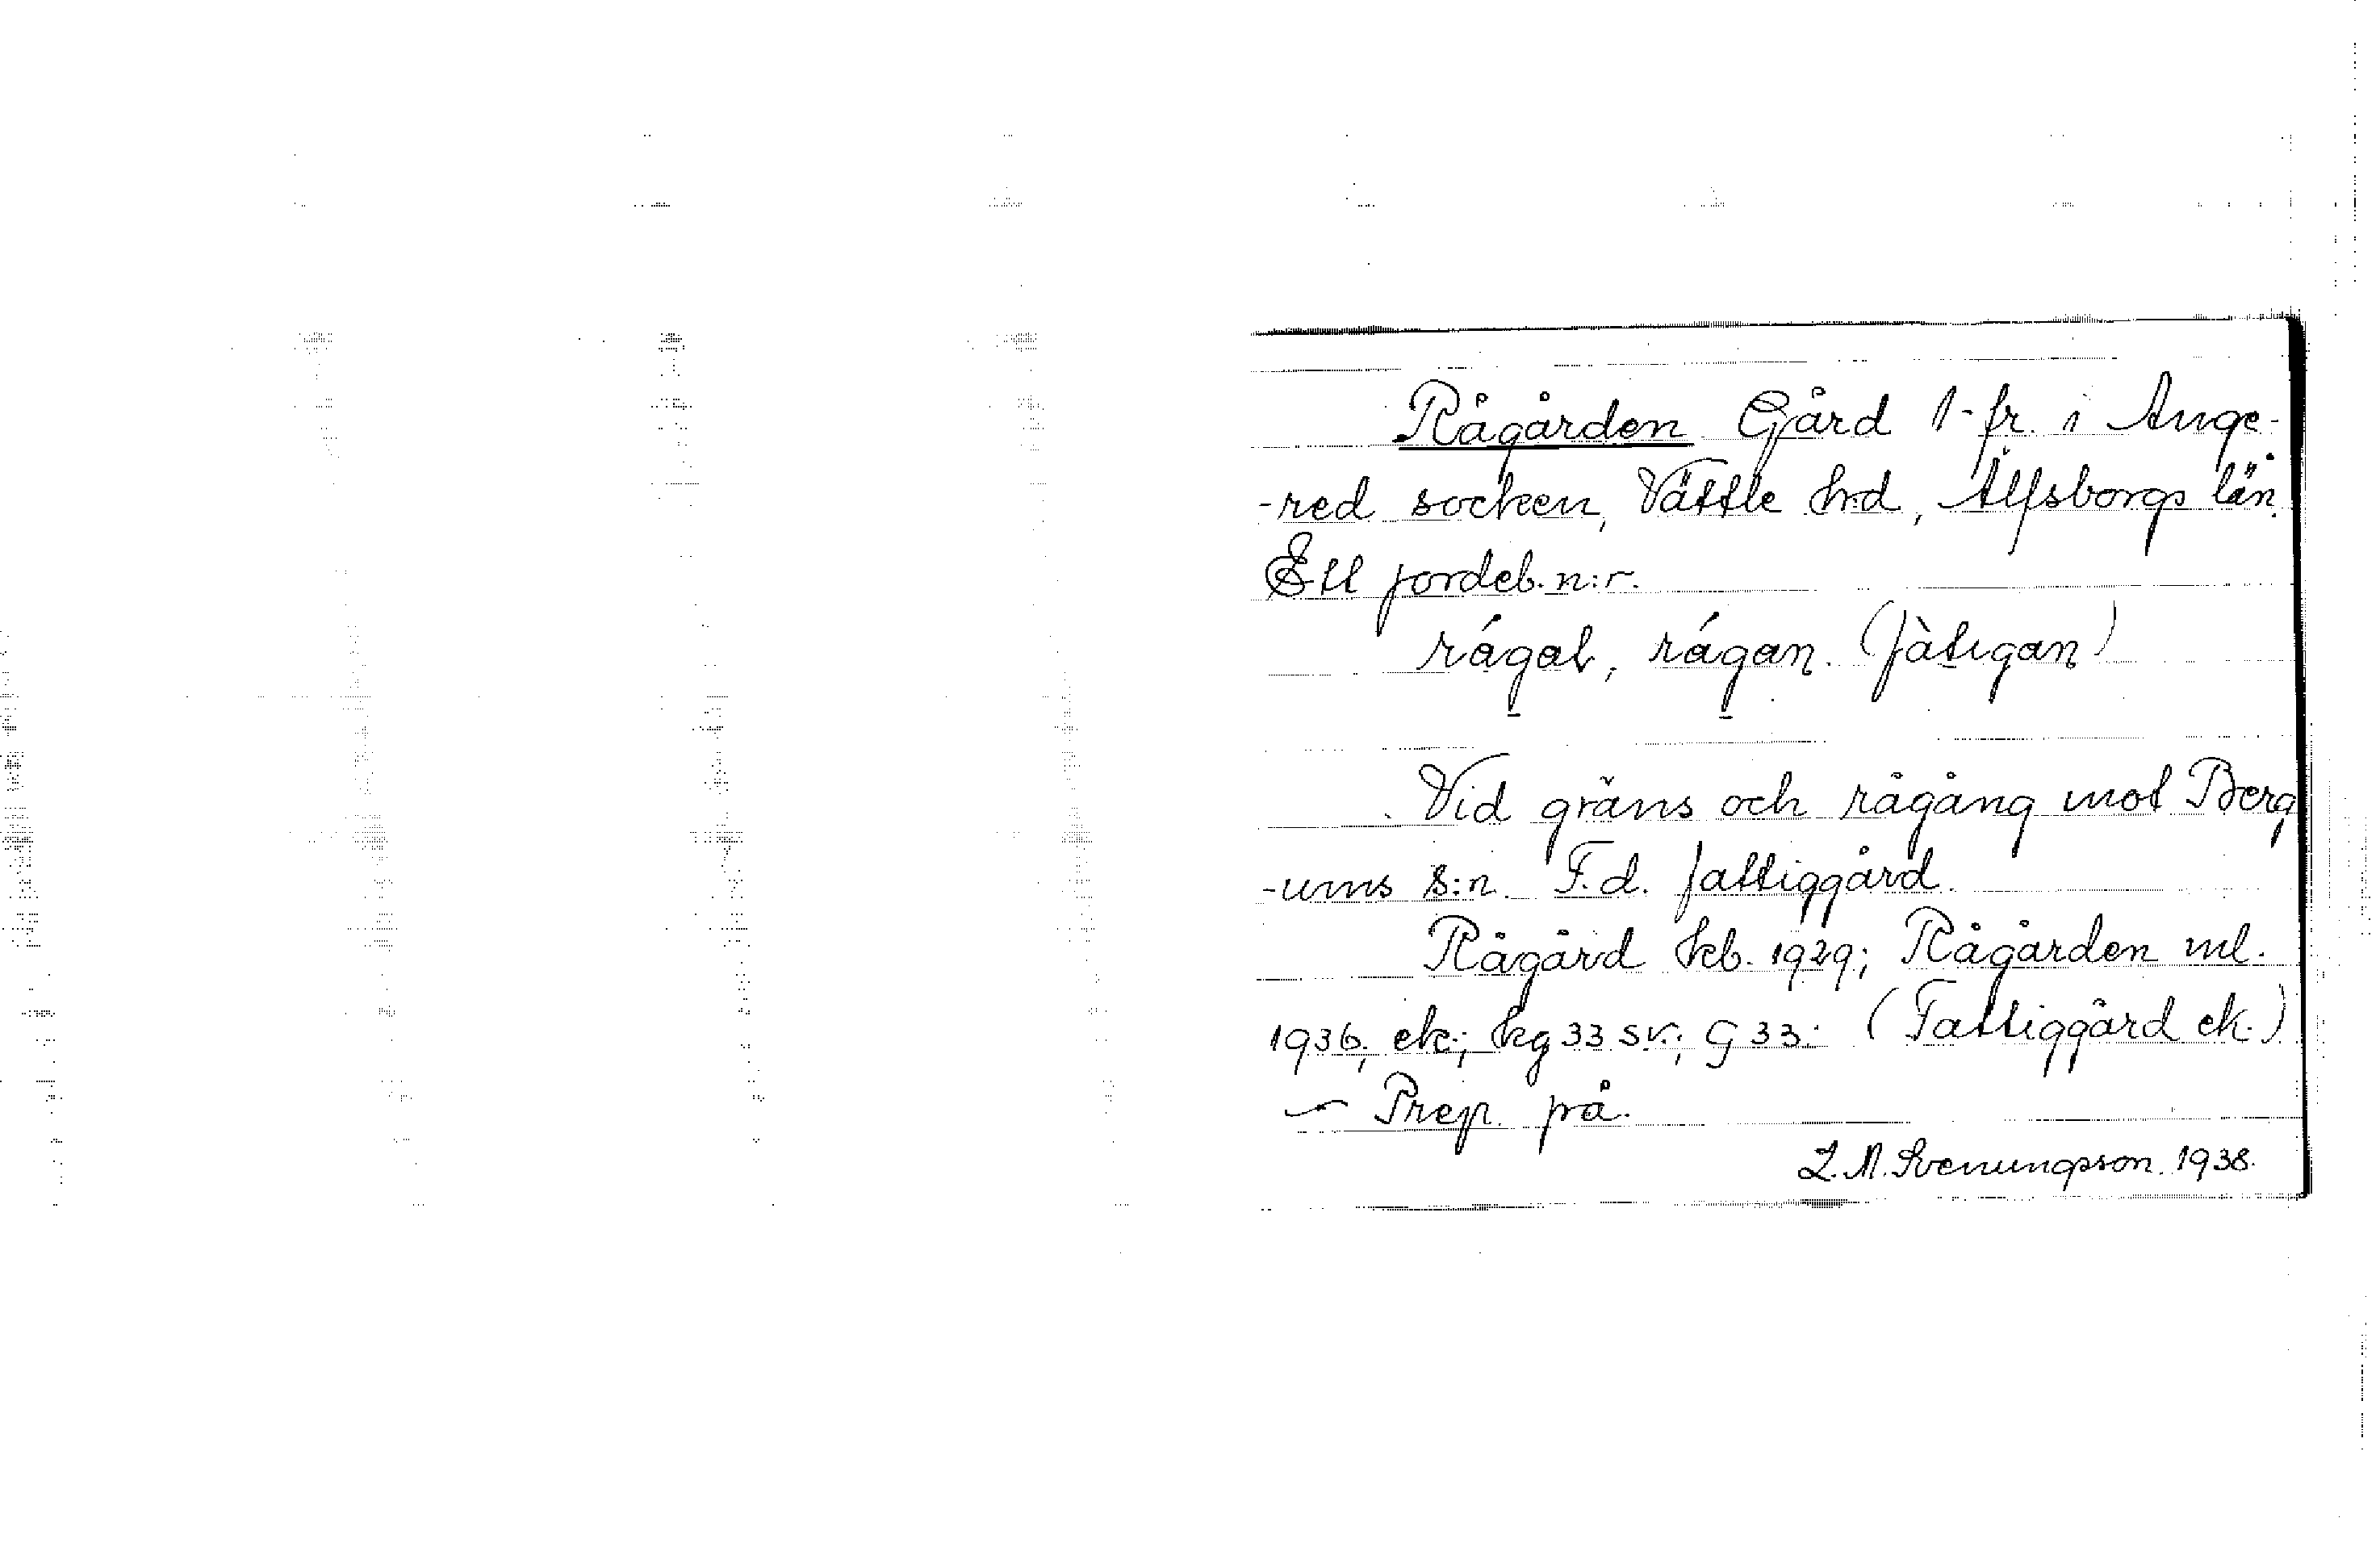 Rågården Gård 1-fr. i Ange-
-red socken, Vättle hrd, Älfsborgs län.
Ett jordeb. n:r.
rágaḷ, rágan. (fàtigan)
Vid gräns och rågång mot Berg
-ums s:n. F.d. fattiggård.
Rågård kb. 1929; Rågården ml.
1936; ek.; kg 33 sv.; G 33. (Fattiggård ek.)
— Prep. på.
L.N. Svenungsson. 1938.